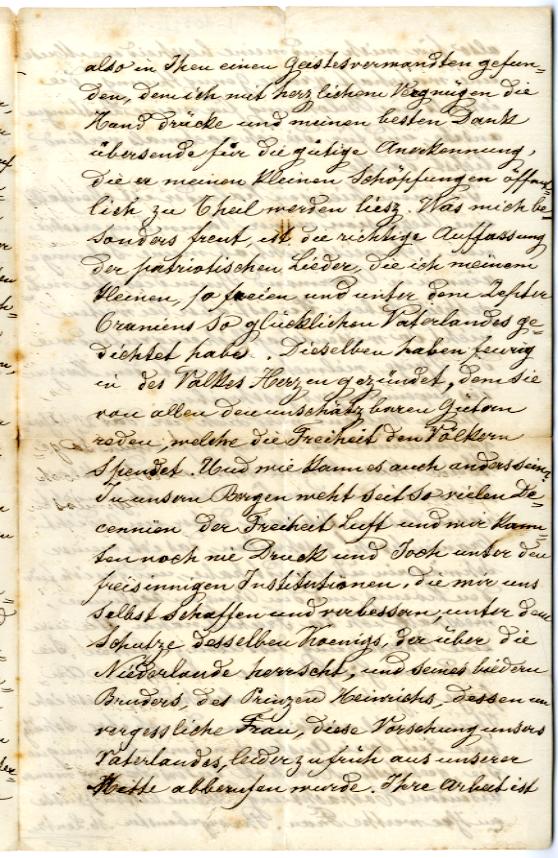 also in Ihen einen Geistesverwandten gefun=
den, dem ich mit herzlichem Vergnügen die
Hand drücke und meinen besten Dank
übersende für die gütige Anerkennung,
die er meinen kleinen Schöpfungen öffent=
lich zu Theil werden liesz. Was mich be=
sonders freut, ist die richtige Auffassung
der patriotischen Lieder, die ich meinem
kleinen, so freien und unter dem Zepter
Oraniens so glücklichen Vaterlandes ge=
dichtet habe. Dieselben haben feurig
in des Volkes Herzen gezündet, dem sie
von allen den unschätzbaren Gütern
reden, welche die Freiheit den Völkern
spendet. Und wie kann es auch anders sein?
In unsern Bergen weht seit so vielen De=
cennien der Freiheit Luft und wir kann=
ten noch nie Druck und Joch unter den
freisinnigen Institutionen, die wir uns
selbst schaffen und verbessern, unter dem
Schutze desselben Koenigs, der über die
Niederlande herrscht, und seines biedern
Bruders, des Prinzen Heinrichs, dessen un
vergessliche Frau, diese Vorsehung unsers
Vaterlandes, leider zu früh aus unserer
Mitte abberufen wurde. Ihre Arbeit ist